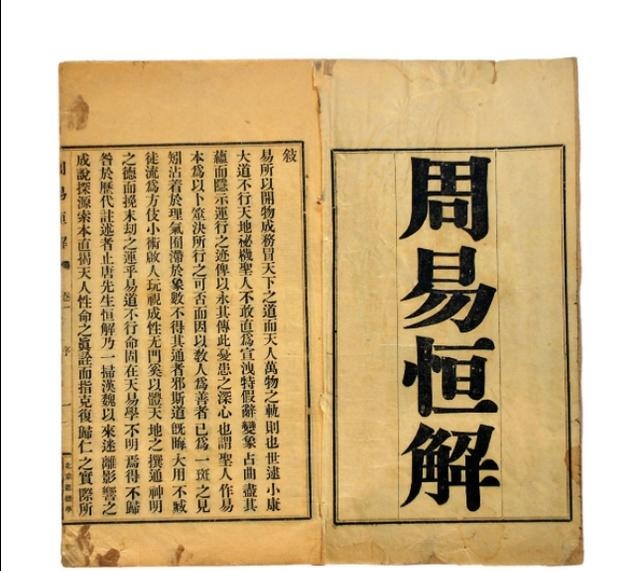 周易恒解
敍
易所以開物成務冒天下之道而天人萬物之軌則也世逮小康
大道不行天地祕機聖人不敢直爲宣洩特假辭變象占曲盡其
蘊而隱示運行之迹俾以永其傳此憂患之深心也謂聖人作易
本爲以卜筮決所行之可否而因以教人爲善者已爲一斑之見
矧沾着於理氣囿滯於象數不得其通者邪斯道旣晦大用不臧
徒流爲方伎小術啟人玩視成性无門奚以體天地之撰通神明
之德而挽末劫之運乎易道不行命固在天易學不明焉得不歸
咎於歷代註述者止唐先生恒解乃一掃漢魏以來迷離影響之
成說探源索本直揭天人性命之眞詮而指克復歸仁之實際所
周易恒解 卷一 序 一